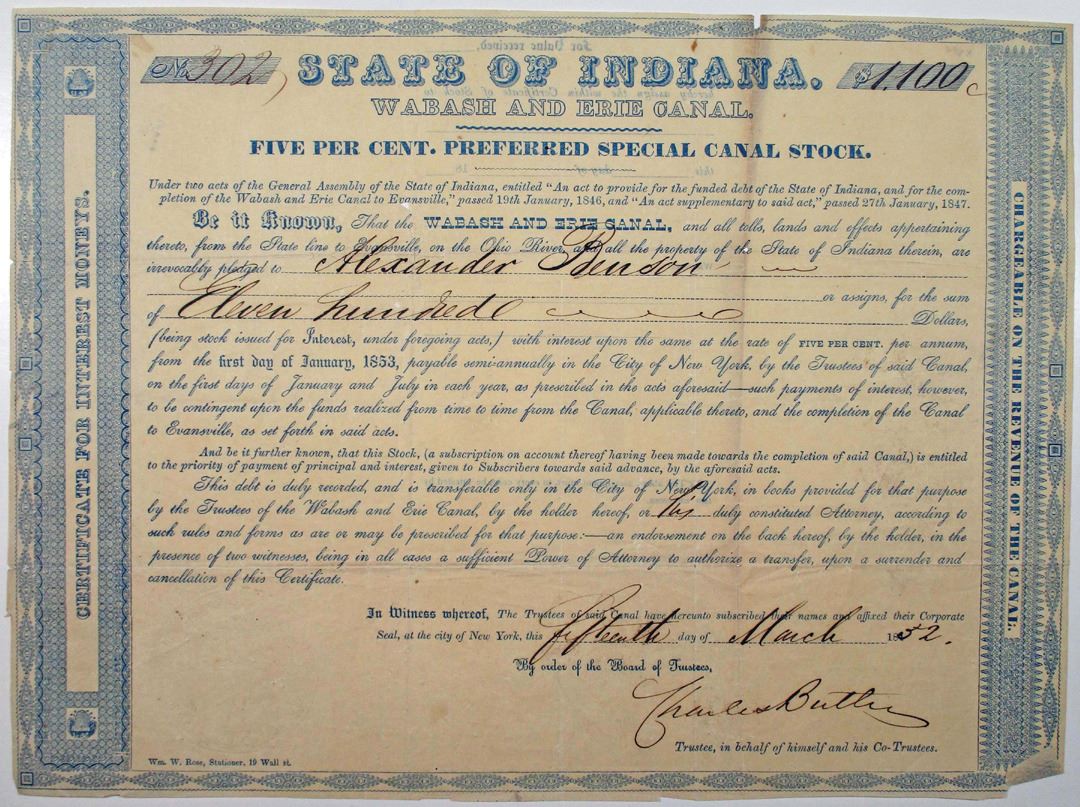 No. 302
STATE OF INDIANA.
$1,100
WABASH AND ERIE CANAL.
FIVE PER CENT. PREFERRED SPECIAL CANAL STOCK.
Under two acts of the General Assembly of the State of Indiana, entitled "An act to provide for the funded debt of the State of Indiana, and for the com-
pletion of the Wabash and Erie Canal to Evansville," passed 19th January, 1846, and "An act supplementary to said act," passed 27th January, 1847.
Be it Known, That the WABASH AND ERIE CANAL, and all tolls, lands and effects appertaining
thereto, from the State line to Evansville, on the Ohio River, and all the property of the State of Indiana therein, are
irrevocably pledged to Alexander Benson
or assigns, for the sum
of Eleven hundred Dollars,
(being stock issued for Interest, under foregoing acts,) with interest upon the same at the rate of FIVE PER CENT. per annum,
from the first day of January, 1853, payable semi-annually in the City of New York, by the Trustees of said Canal,
on the first days of January and July in each year, as prescribed in the acts aforesaid—such payments of interest, however,
to be contingent upon the funds realized from time to time from the Canal, applicable thereto, and the completion of the Canal
to Evansville, as set forth in said acts.
And be it further known, that this Stock, (a subscription on account thereof having been made towards the completion of said Canal,) is entitled
to the priority of payment of principal and interest, given to Subscribers towards said advance, by the aforesaid acts.
This debt is duly recorded, and is transferable only in the City of New York, in books provided for that purpose
by the Trustees of the Wabash and Erie Canal, by the holder hereof, or his duly constituted Attorney, according to
such rules and forms as are or may be prescribed for that purpose:—an endorsement on the back hereof, by the holder, in the
presence of two witnesses, being in all cases a sufficient Power of Attorney to authorize a transfer, upon a surrender and
cancellation of this Certificate.
In Witness whereof, The Trustees of said Canal have hereunto subscribed their names and affixed their Corporate
Seal, at the city of New York, this fifteenth day of March 1852.
By order of the Board of Trustees,
Charles Butler
Trustee, in behalf of himself and his Co-Trustees.
Wm. W. Rose, Stationer, 19 Wall st.
CERTIFICATE FOR INTEREST MONEYS.
CHARGEABLE ON THE REVENUE OF THE CANAL.